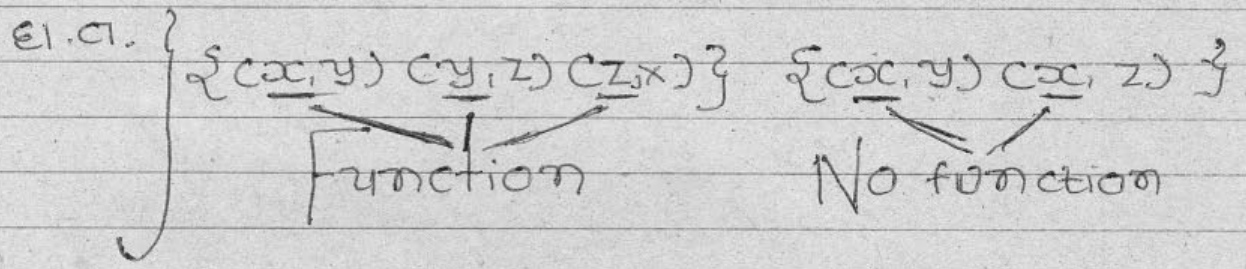 દા.ત. {(x, y) (y, z) (z, x)} {(x, y) (x, z)}
Function No function